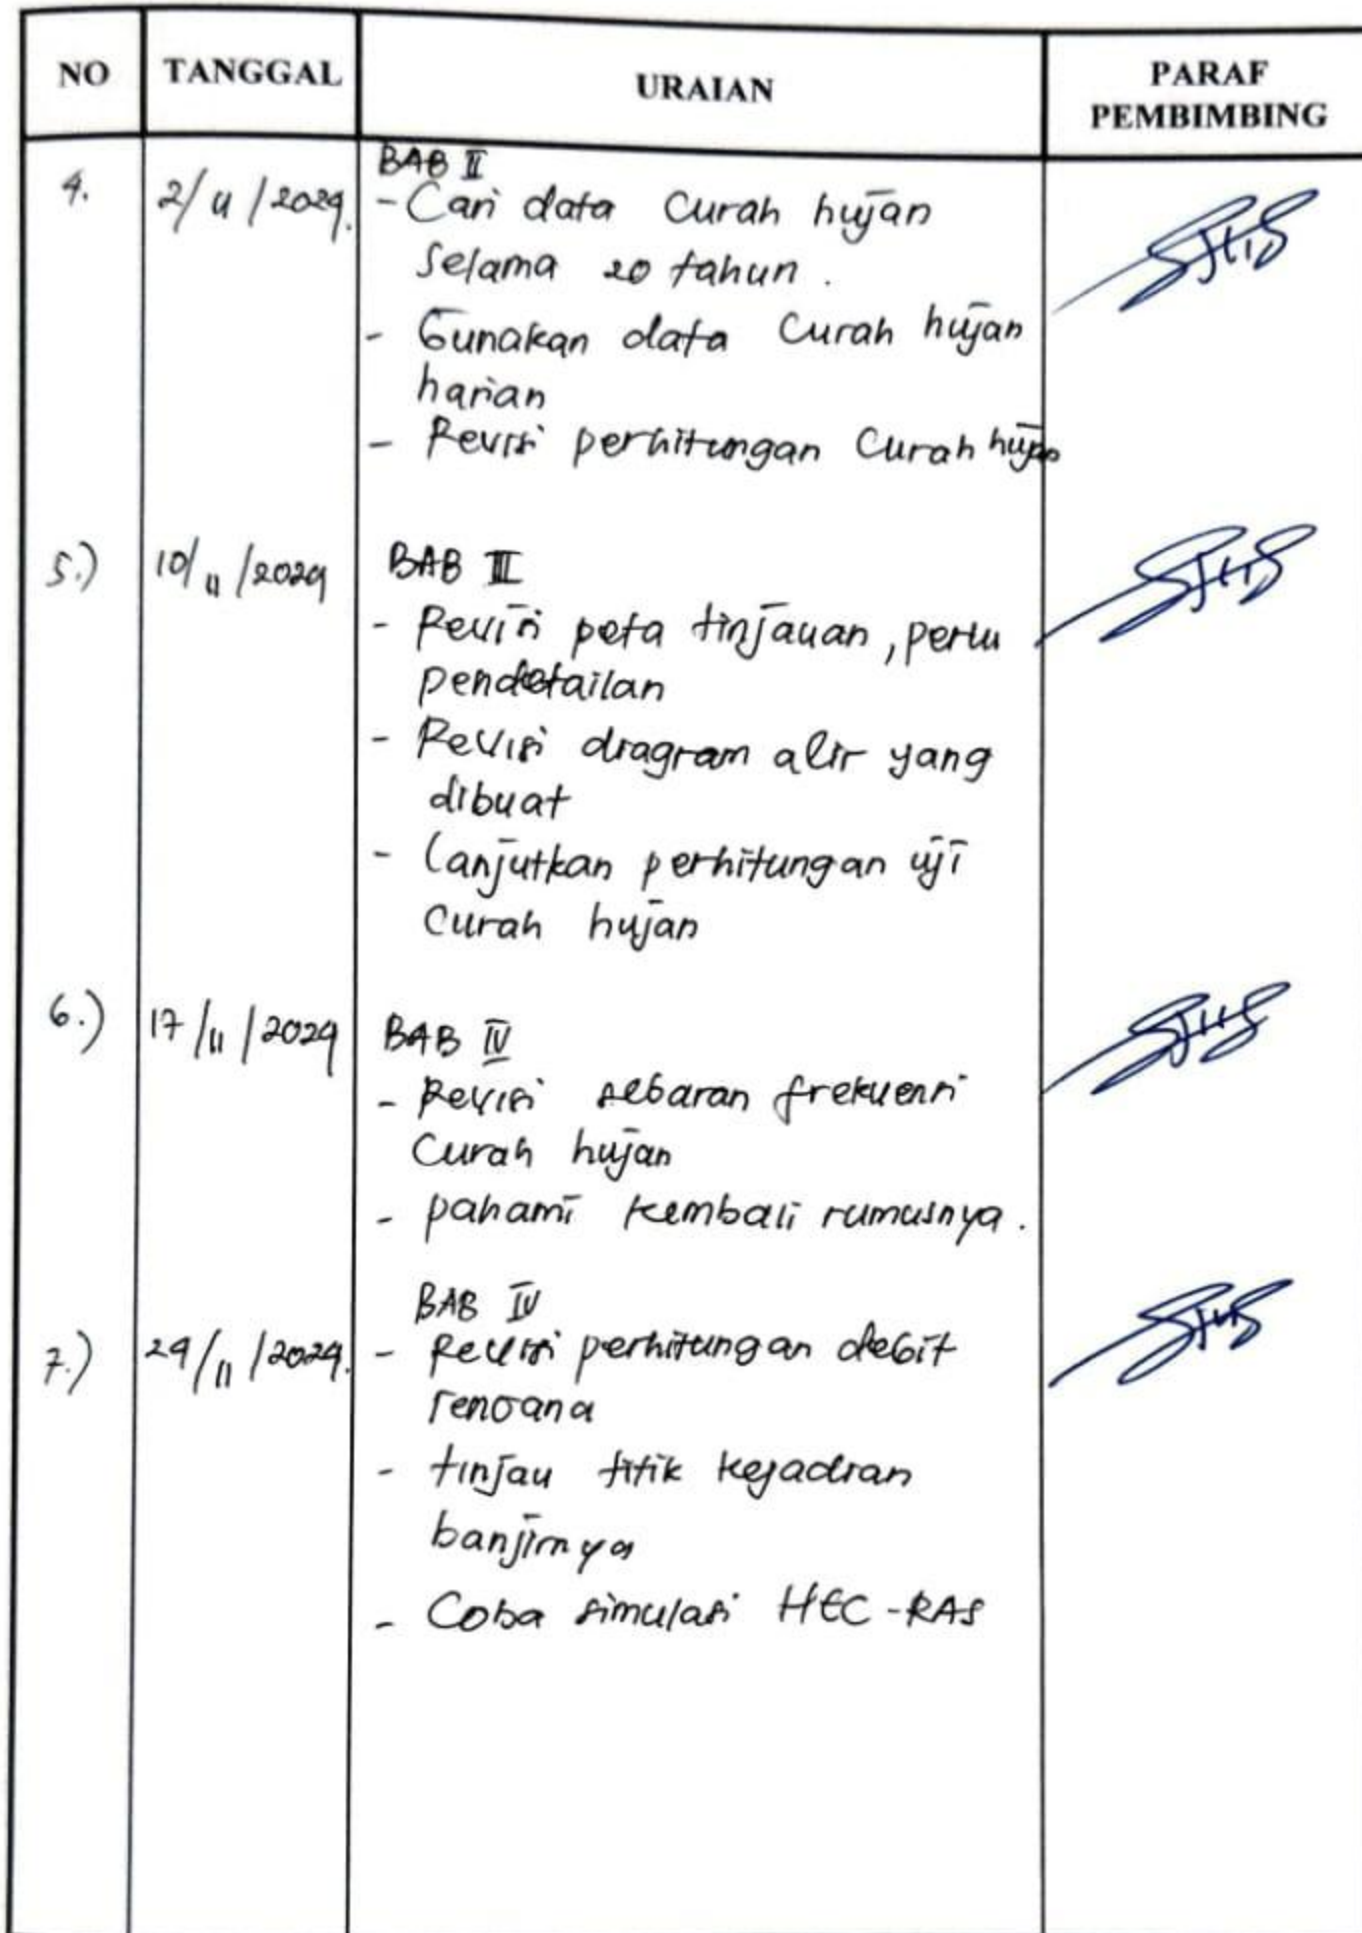 NO TANGGAL URAIAN PARAF
PEMBIMBING
BAB II
4. 2/11/2024. - Cari data Curah hujan
Selama 20 tahun.
- Gunakan data Curah hujan
harian
- Revisi perhitungan Curah hujan
5.) 10/11/2024 BAB III
- Revisi peta tinjauan, perlu
pendetailan
- Revisi diagram alir yang
dibuat
- Lanjutkan perhitungan uji
Curah hujan
6.) 17/11/2024 BAB IV
- Revisi sebaran frekuensi
Curah hujan
- pahami kembali rumusnya.
BAB IV
7.) 24/11/2024. - Revisi perhitungan debit
rencana
- tinjau titik kejadian
banjirnya
- Coba simulasi HEC-RAS